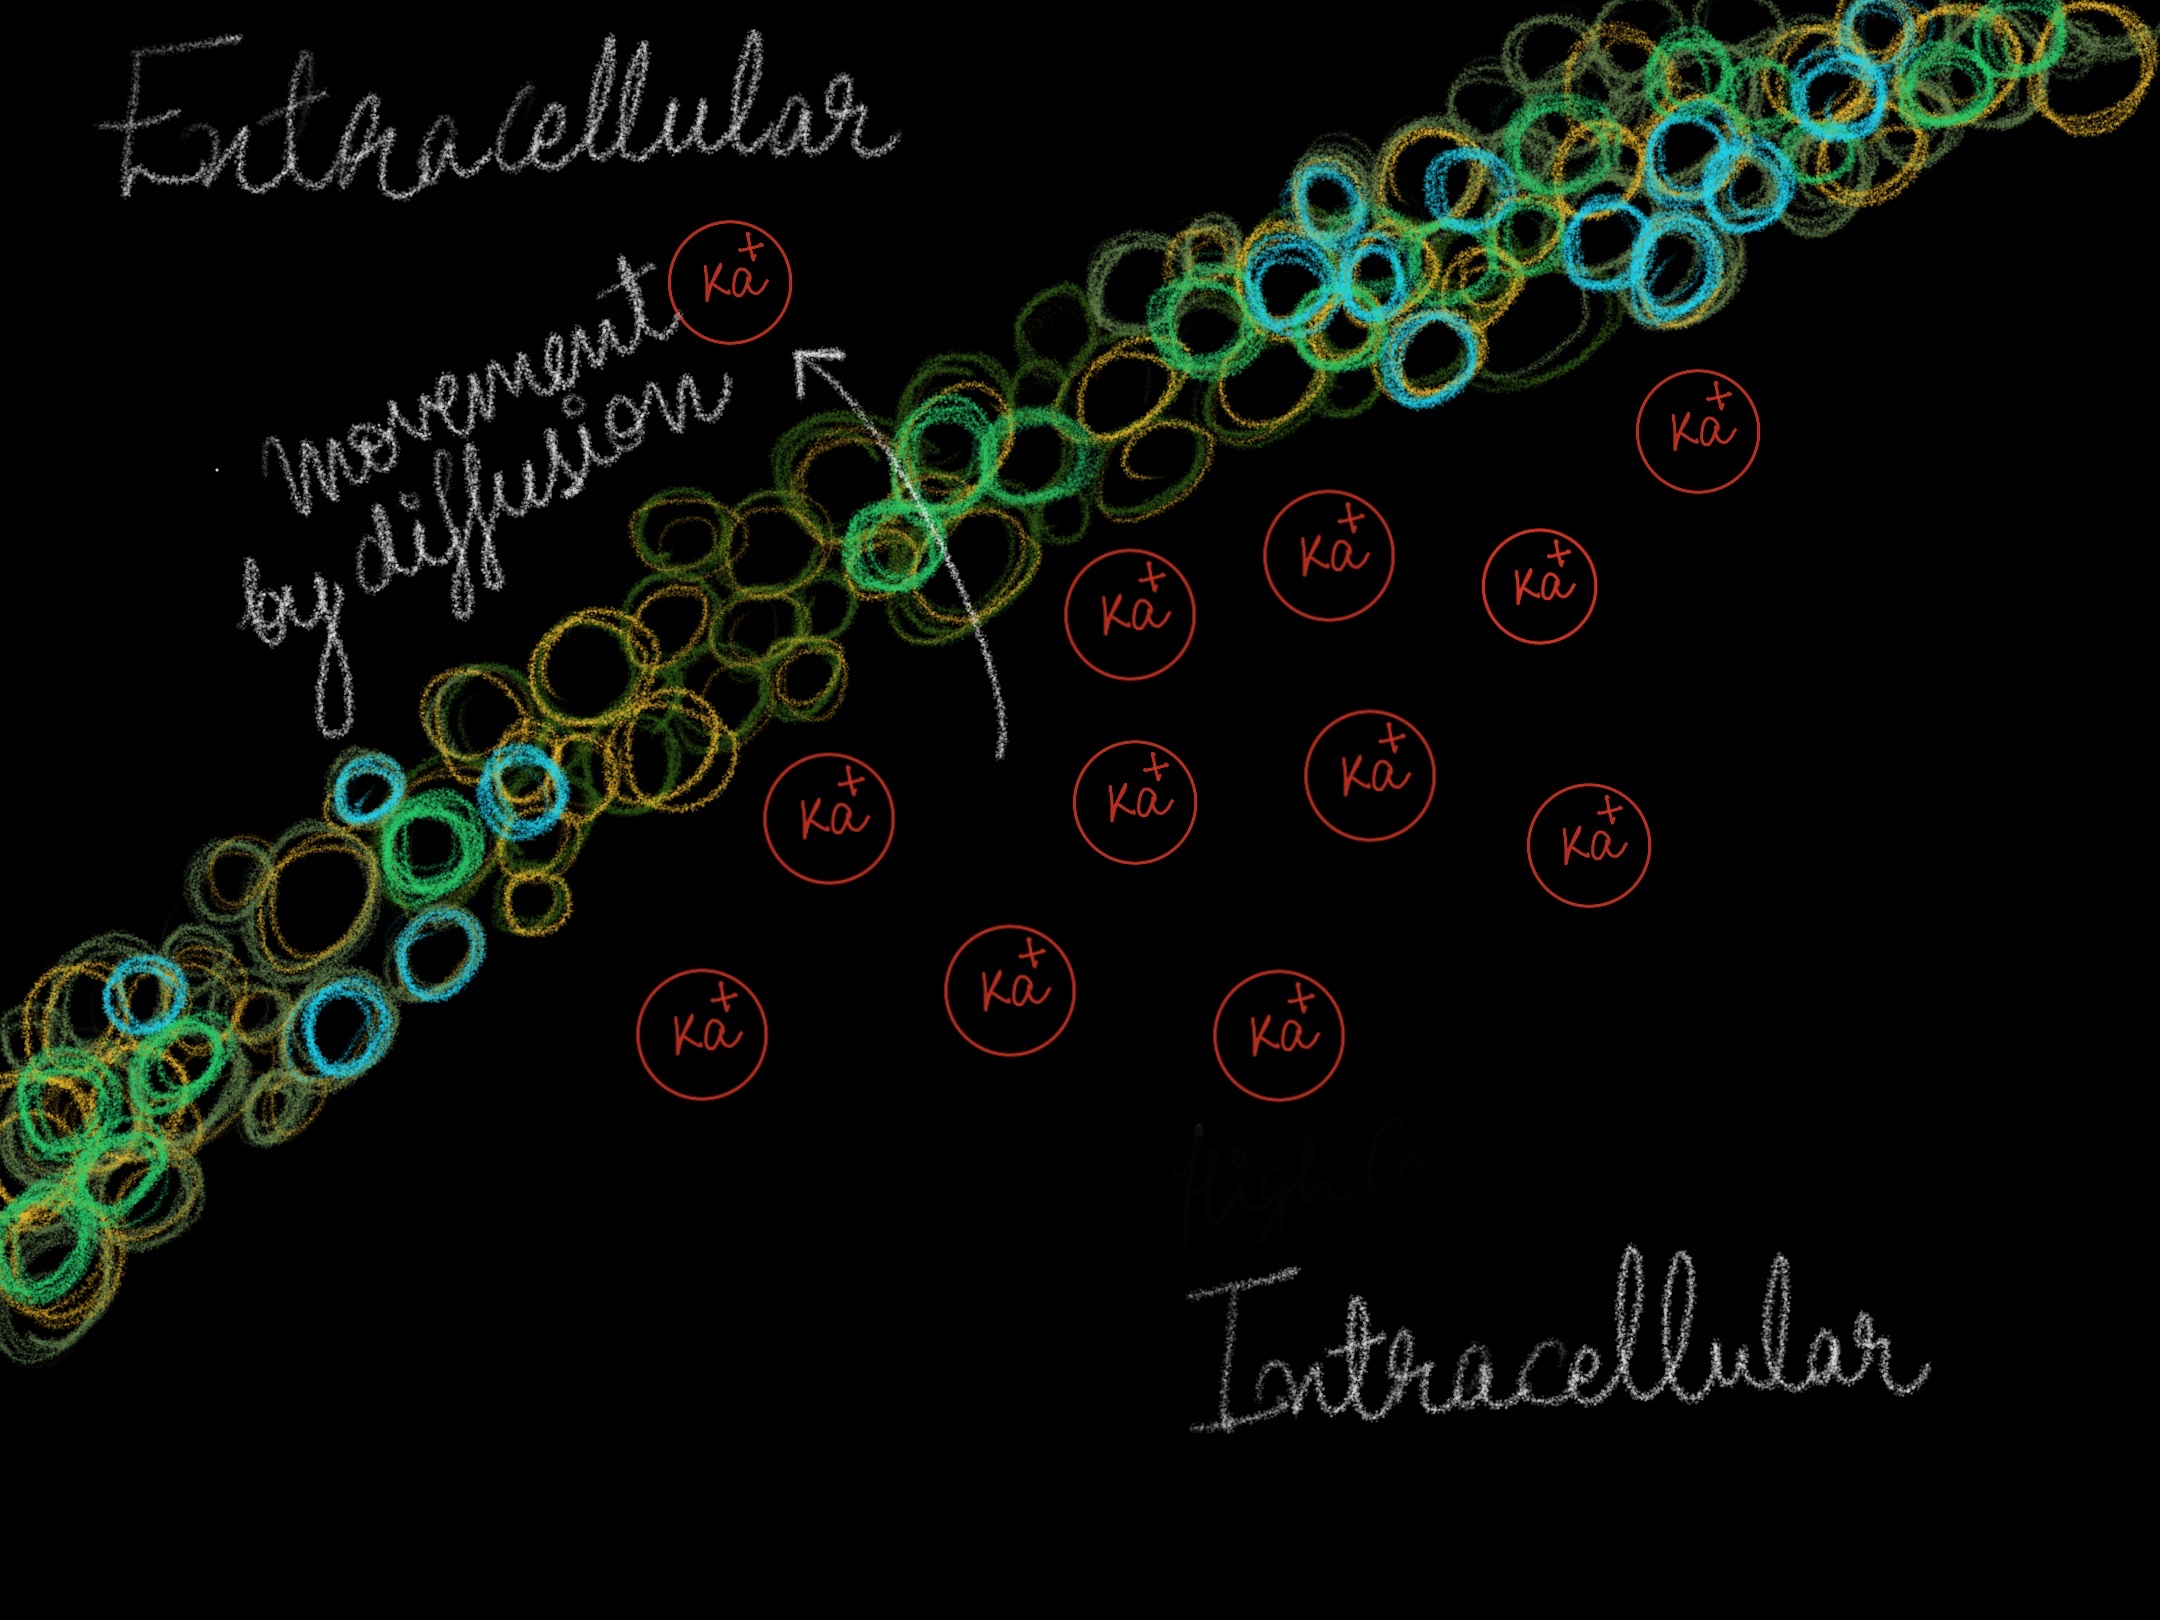 Extracellular
Ka+
movement
by diffusion
Ka+
Ka+
Ka+
Ka+
Ka+
Ka+
Ka+
Ka+
Ka+
Ka+
Ka+
High
Intracellular